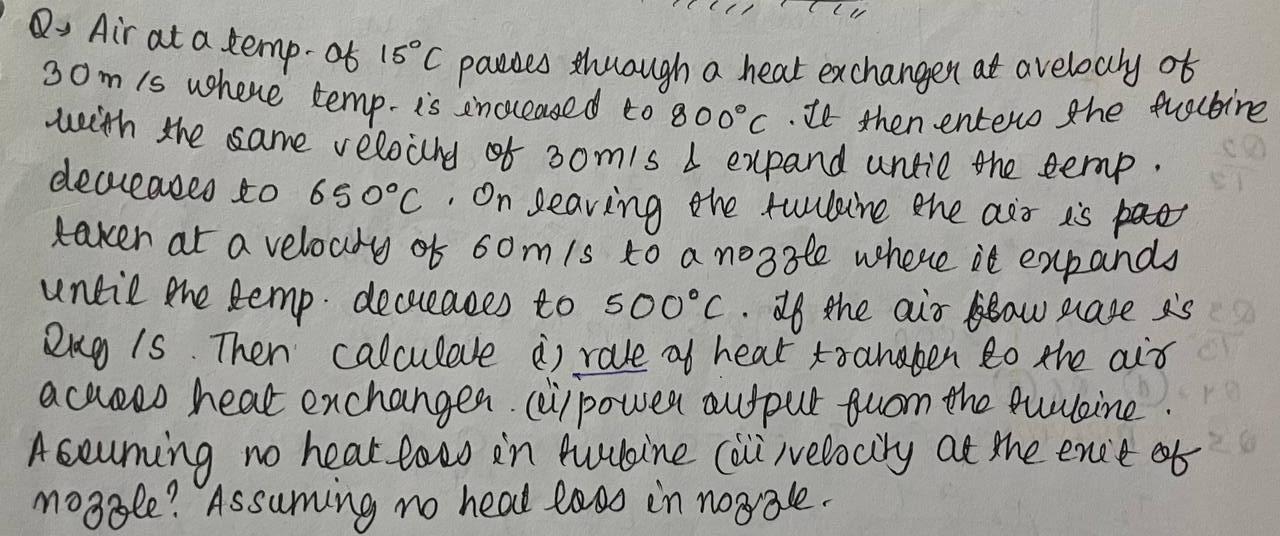 Q→ Air at a temp. of 15°C passes through a heat exchanger at a velocity of
30m/s where temp. is increased to 800°C. It then enters the turbine
with the same velocity of 30m/s & expand until the temp.
decreases to 650°C. On leaving the turbine the air is
taken at a velocity of 60m/s to a nozzle where it expands
until the temp. decreases to 500°C. If the air flow rate is
2kg/s. Then calculate i) rate of heat transfer to the air
across heat exchanger. (ii) power output from the turbine.
Assuming no heat loss in turbine (iii) velocity at the exit of
nozzle? Assuming no heat loss in nozzle.